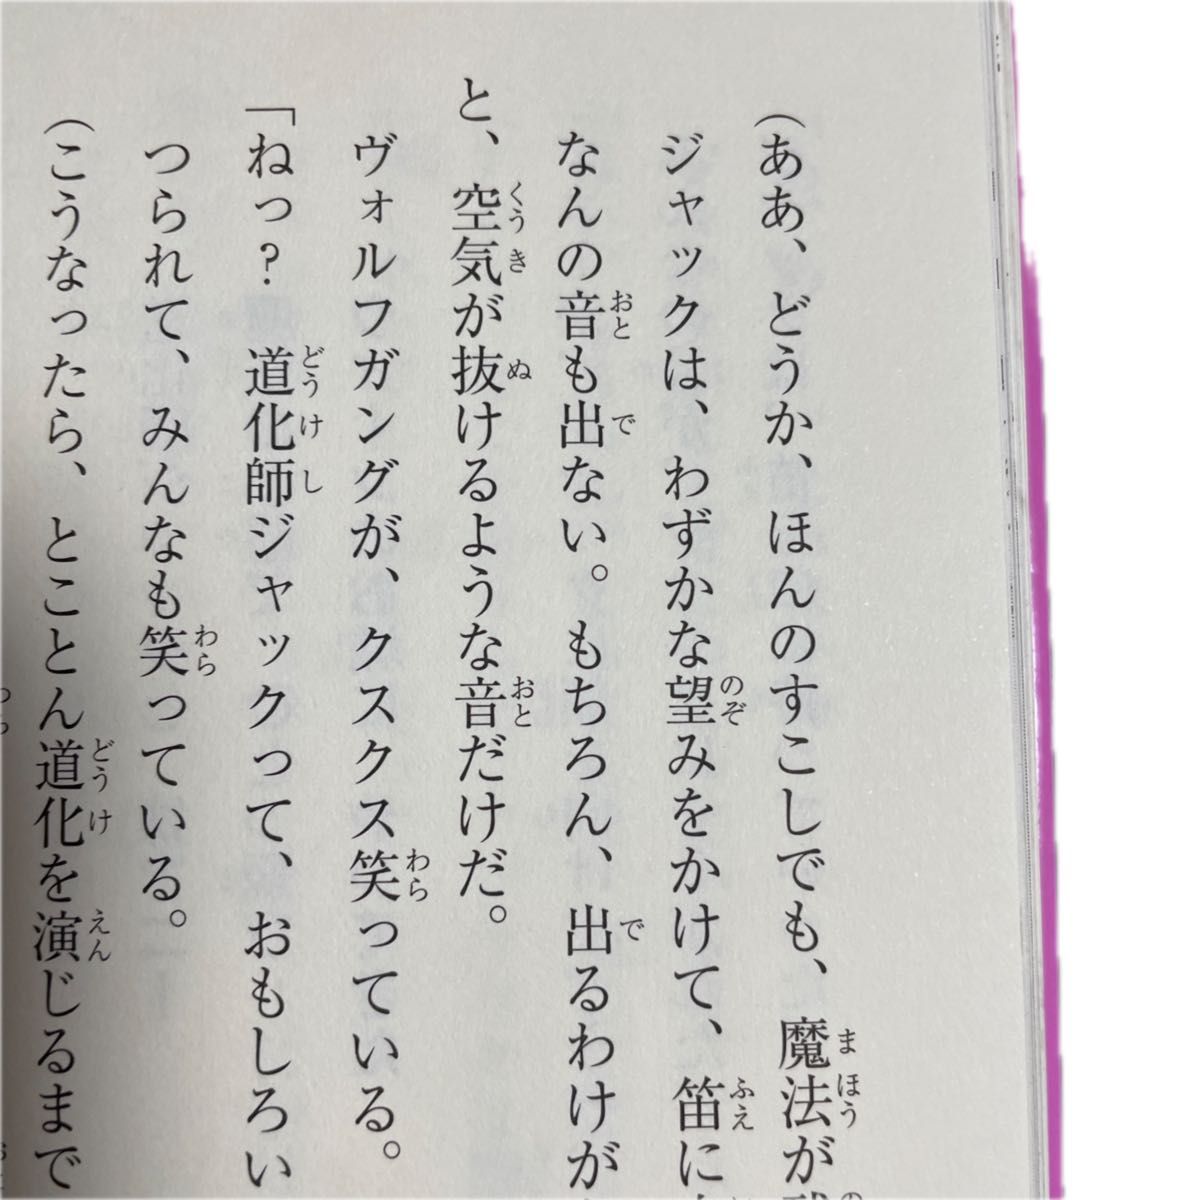 （ああ、どうか、ほんのすこしでも、魔法が
ジャックは、わずかな望みをかけて、笛に
なんの音も出ない。もちろん、出るわけが
と、空気が抜けるような音だけだ。
ヴォルフガングが、クスクス笑っている。
「ねっ？　道化師ジャックって、おもしろい
つられて、みんなも笑っている。
（こうなったら、とことん道化を演じるまで